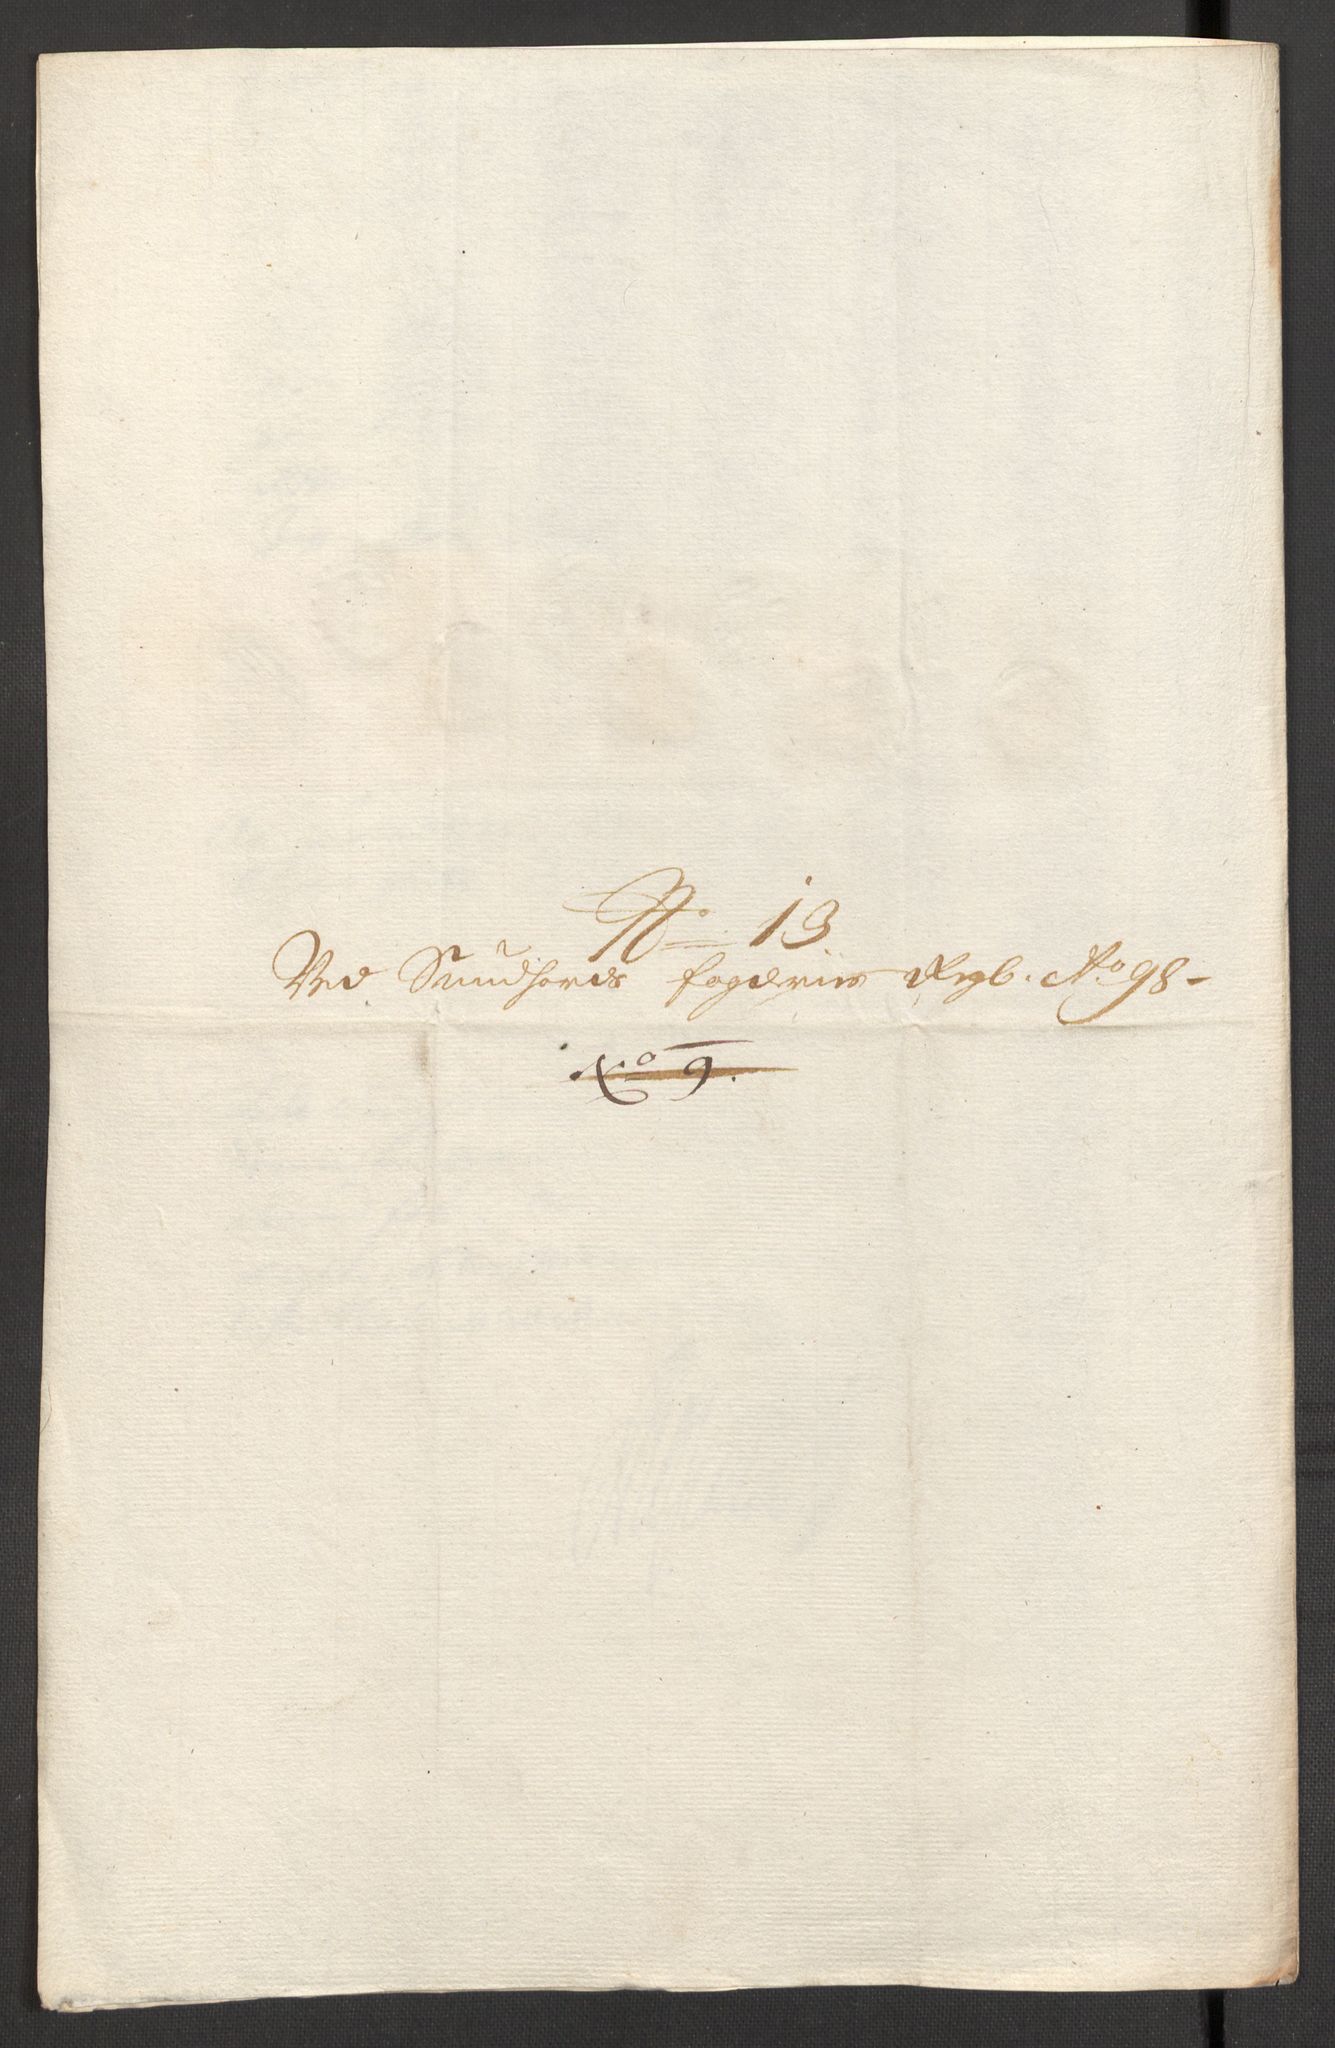 No 13
Ved Sundhords fogderies Regb. Ao 98 -
No 9.